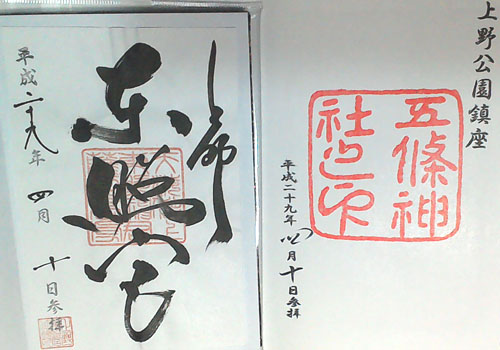 上野公園鎮座
五條神
社之印
平成二十九年四月十日参拝
上野
東照宮
平成二十九年四月十日参拝